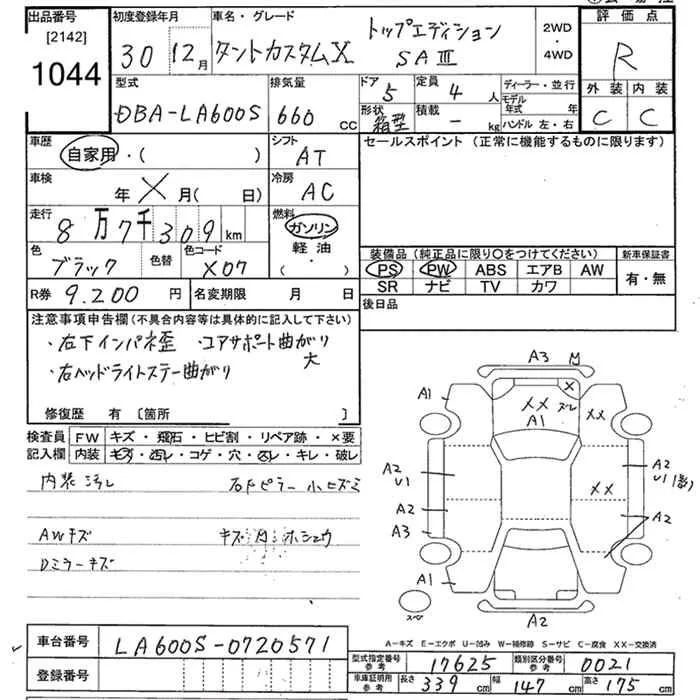 出品番号 [2142] 1044
初度登録年月 30 12月
車名・グレード タントカスタムX トップエディション SAⅢ
2WD・4WD
評価点 R
外装 C 内装 C
型式 DBA-LA600S
排気量 660 cc
ドア 5
定員 4 人
形状 箱型
積載 - kg
ディーラー・並行
モデル年式 年
ハンドル 左・右
車歴 自家用・( )
シフト AT
セールスポイント (正常に機能するものに限ります)
車検 年 X 月 ( 日)
冷房 AC
走行 8万7千309 km
燃料 ガソリン 軽油 ( ・ )
色 ブラック 色替 色コード X07
装備品 (純正品に限り○をつけてください)
新車保証書 有・無
PS PW ABS エアB AW
SR ナビ TV カワ
R券 9.200 円
名変期限 月 日
後日品
注意事項申告欄 (不具合内容等は具体的に記入して下さい)
・右下インパネ歪 ・コアサポート曲がり大
・右ヘッドライトステー曲がり
修復歴 有 [箇所 ]
検査員 FW キズ・飛石・ヒビ割・リペア跡・×要
記入欄 内装 キズ・汚レ・コゲ・穴・スレ・キレ・破レ
内装汚レ
右Fピラー小ヒズミ
AWキズ
Dミラーキズ
A3 M
A1 XX ズレ X XX
A1
A2 U1 A2 U1
A2 XX
A3 A2
A1
A2
スペ
A-キズ E-エクボ U-凹み W-補修跡 S-サビ C-腐食 XX-交換済
車台番号 LA600S-0720571
登録番号
型式指定番号 参考 17625 類別区分番号 参考 0021
車庫証明用 参考 長さ 339 cm 幅 147 cm 高さ 175 cm